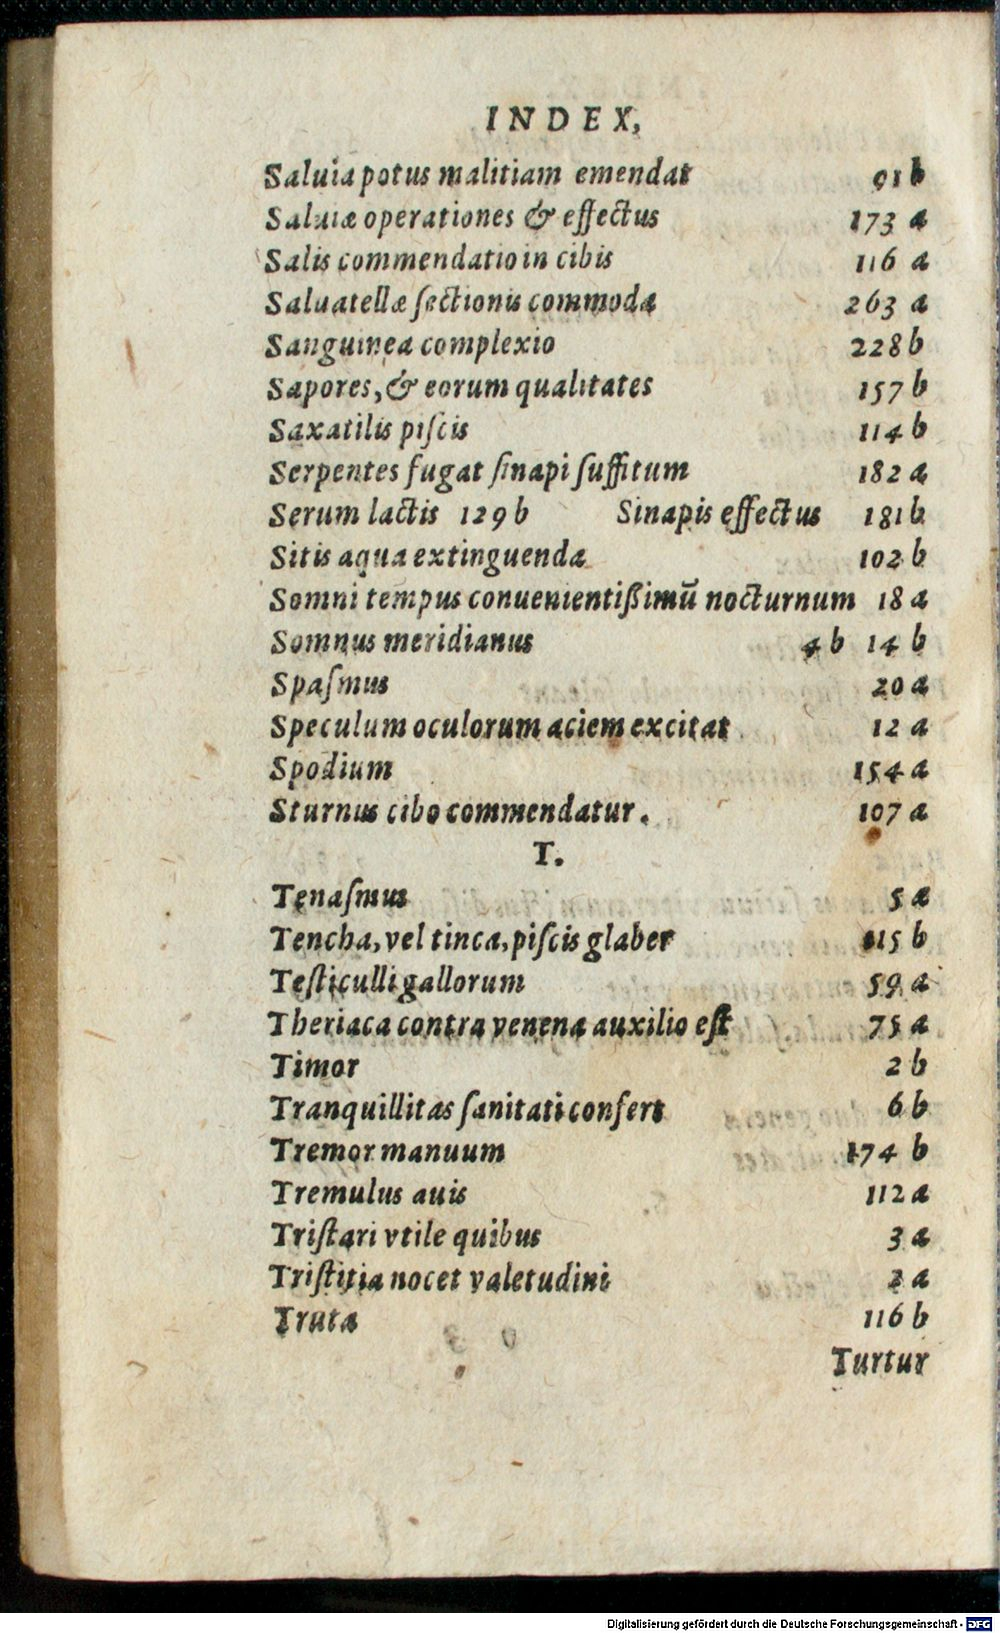 INDEX,
Saluia potus malitiam emendat 91 b
Saluiæ operationes & effectus 173 a
Salis commendatio in cibis 116 a
Saluatellæ ſectionis commoda 263 a
Sanguinea complexio 228 b
Sapores, & eorum qualitates 157 b
Saxatilis piſcis 114 b
Serpentes fugat ſinapi ſuffitum 182 a
Serum lactis 129 b Sinapis effectus 181 b
Sitis aqua extinguenda 102 b
Somni tempus conuenientißimū nocturnum 18 a
Somnus meridianus 4 b 14 b
Spaſmus 20 a
Speculum oculorum aciem excitat 12 a
Spodium 154 a
Sturnus cibo commendatur. 107 a
T.
Tenaſmus 5 a
Tencha, vel tinca, piſcis glaber 115 b
Teſticulli gallorum 59 a
Theriaca contra venena auxilio eſt 75 a
Timor 2 b
Tranquillitas ſanitati confert 6 b
Tremor manuum 174 b
Tremulus auis 112 a
Triſtari vtile quibus 3 a
Triſtitia nocet valetudini 2 a
Truta 116 b
Turtur
Digitalisierung gefördert durch die Deutsche Forschungsgemeinschaft - DFG